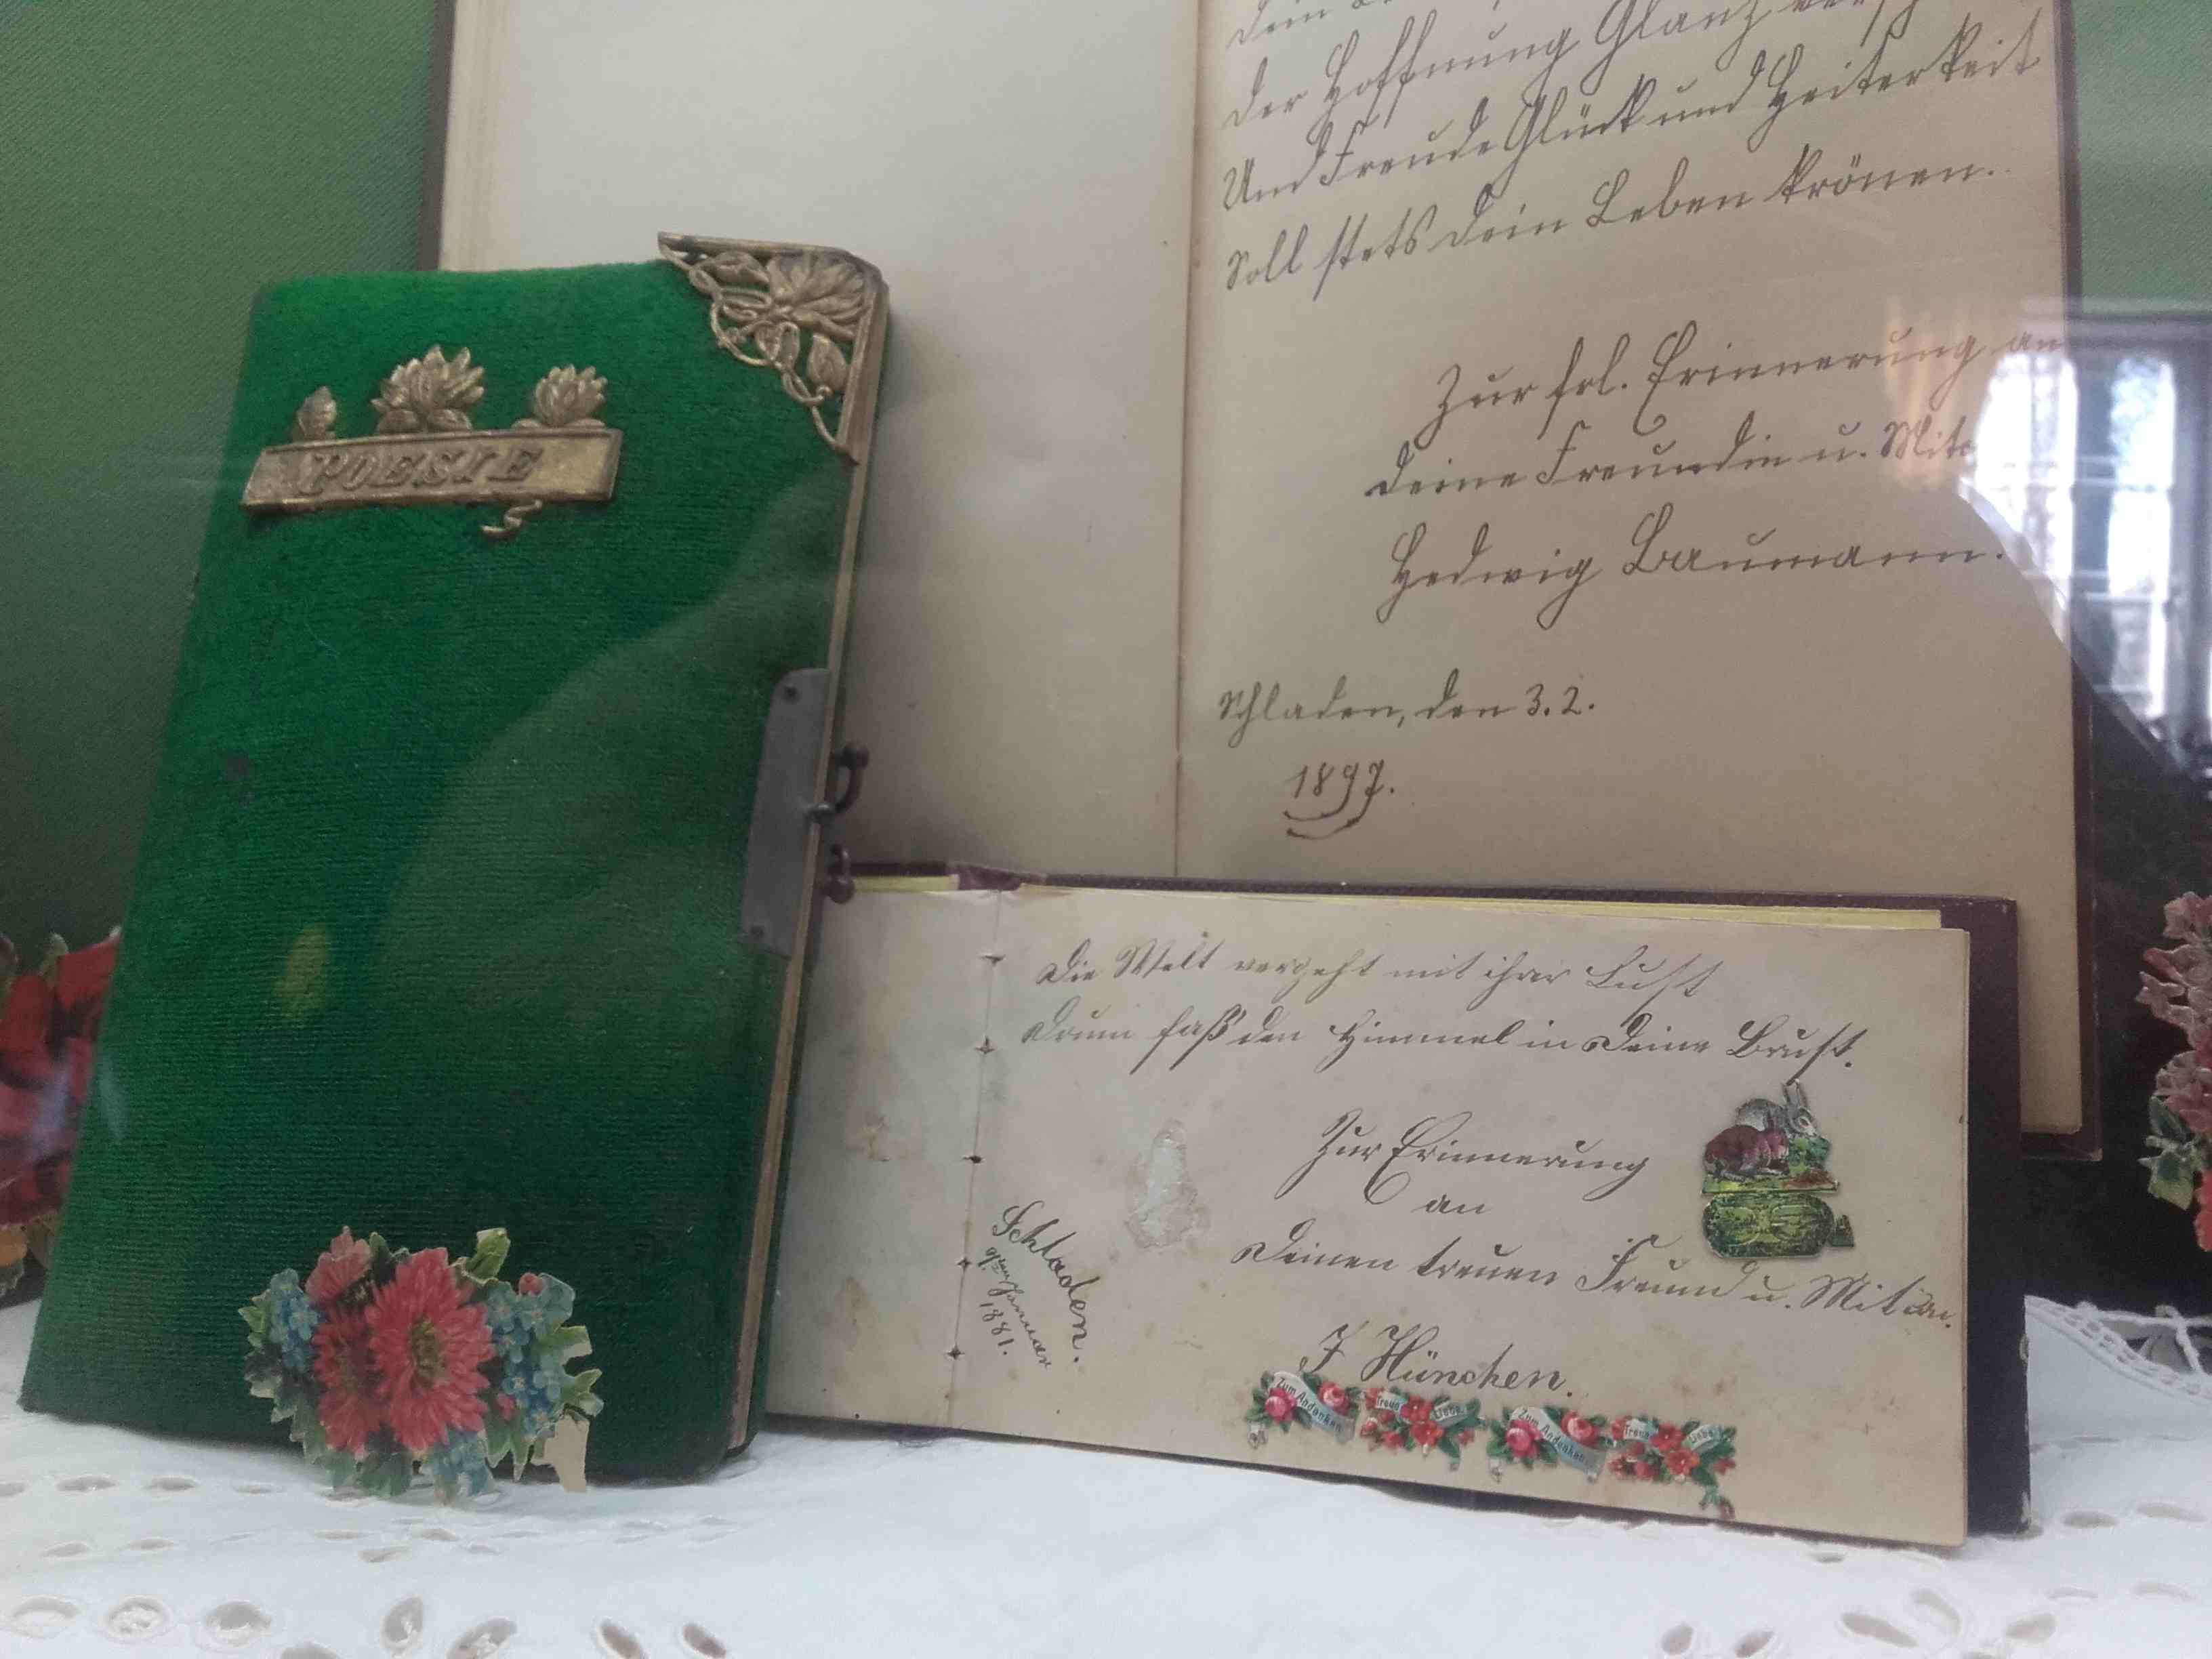 POESIE
Dein
Der Hoffnung Glanz
Und Freude Glück und Heiterkeit
Soll stets Dein Leben krönen.
Zur frl. Erinnerung an
Deine Freundin u. Mit
Hedwig Baumann.
Schladen, den 3. 2.
1897.
Die Welt vergeht mit ihrer Lust
Drum faß' den Himmel in Deine Brust.
Zur Erinnerung
an
Deinen treuen Freund u. Mit
J München.
Schladen.
Januar
1881.
Zum Andenken
Treue Liebe
Zum Andenken
Treue Liebe